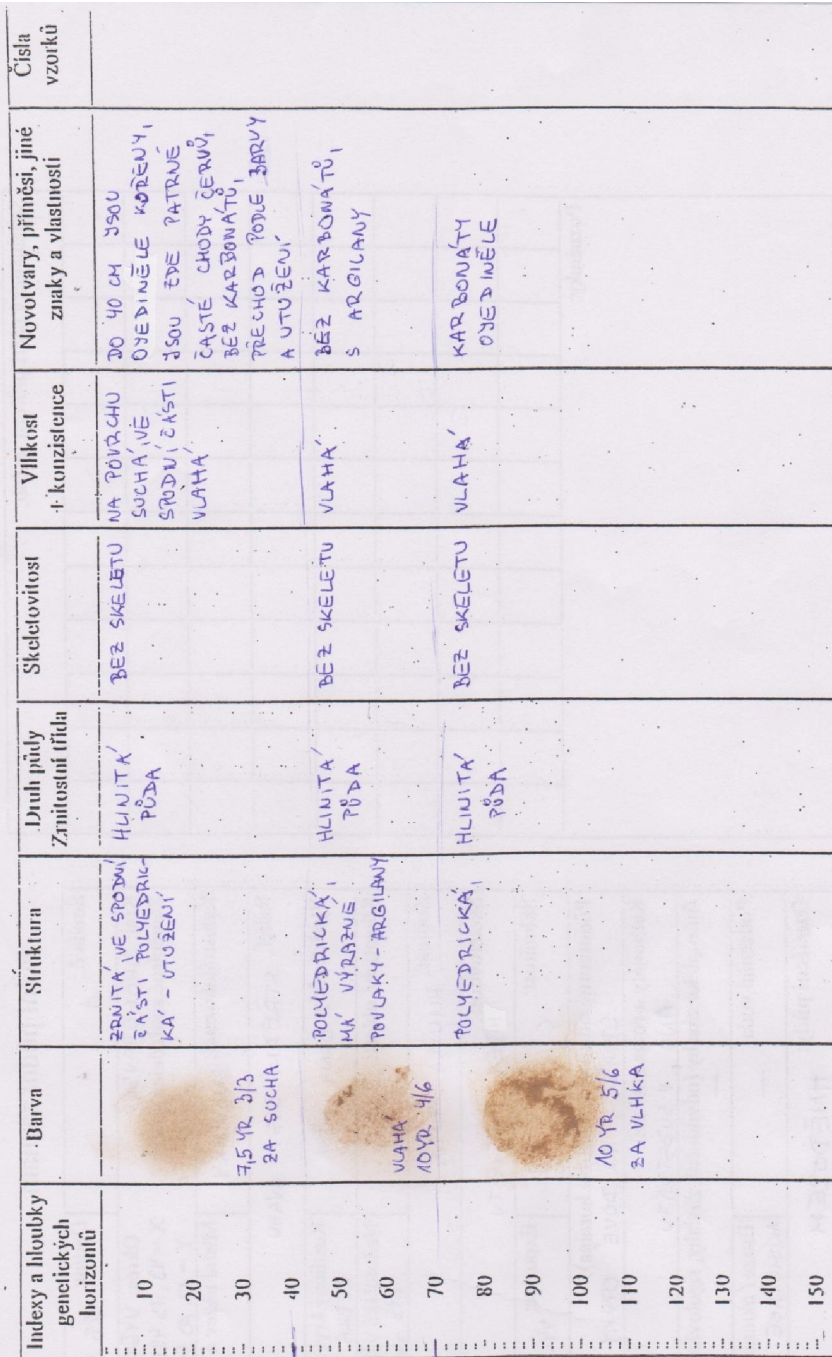 Indexy a hloubky
genetických
horizontů
Barva
Struktura
Druh půdy
Zrnitostní třída
Skeletovitost
Vlhkost
+ konzistence
Novotvary, příměsi, jiné
znaky a vlastnosti
Čísla
vzorků
10
20
30
40
50
60
70
80
90
100
110
120
130
140
150
7,5 YR 3/3
ZA SUCHA
ZRNITÁ, VE SPODNÍ
ČÁSTI POLYEDRIC-
KÁ - UTUŽENÍ
HLINITÁ
PŮDA
BEZ SKELETU
NA POVRCHU
SUCHÁ, VE
SPODNÍ ČÁSTI
VLAHÁ
DO 40 CM JSOU
OJEDINĚLE KOŘENY,
JSOU ZDE PATRNÉ
ČASTÉ CHODY ČERVŮ,
BEZ KARBONÁTŮ,
PŘECHOD PODLE BARVY
A UTUŽENÍ
VLAHÁ
10YR 4/6
POLYEDRICKÁ,
MÁ VÝRAZNÉ
POVLAKY-ARGILANY
HLINITÁ
PŮDA
BEZ SKELETU
VLAHÁ
BEZ KARBONÁTŮ,
S ARGILANY
10 YR 5/6
ZA VLHKA
POLYEDRICKÁ,
HLINITÁ
PŮDA
BEZ SKELETU
VLAHÁ
KARBONÁTY
OJEDINĚLE